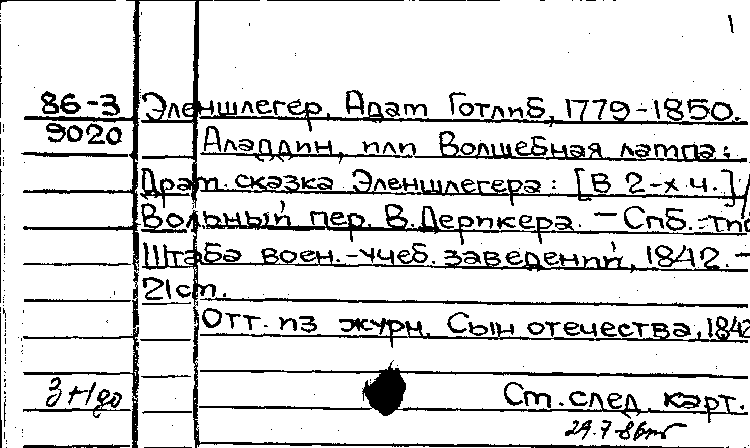 1
86-3 Эленшлегер, Адам Готлиб, 1779-1850.
9020 Аладдин, или Волшебная лампа:
Драм. сказка Эленшлегера: [В 2-х ч.]/
Вольный пер. В. Дерикера. — Спб.: тип
Штаба воен.-учеб. заведений, 1842. —
21 см.
Отт. из журн. Сын отечества, 1842
Ст. след. карт.
29.7-86